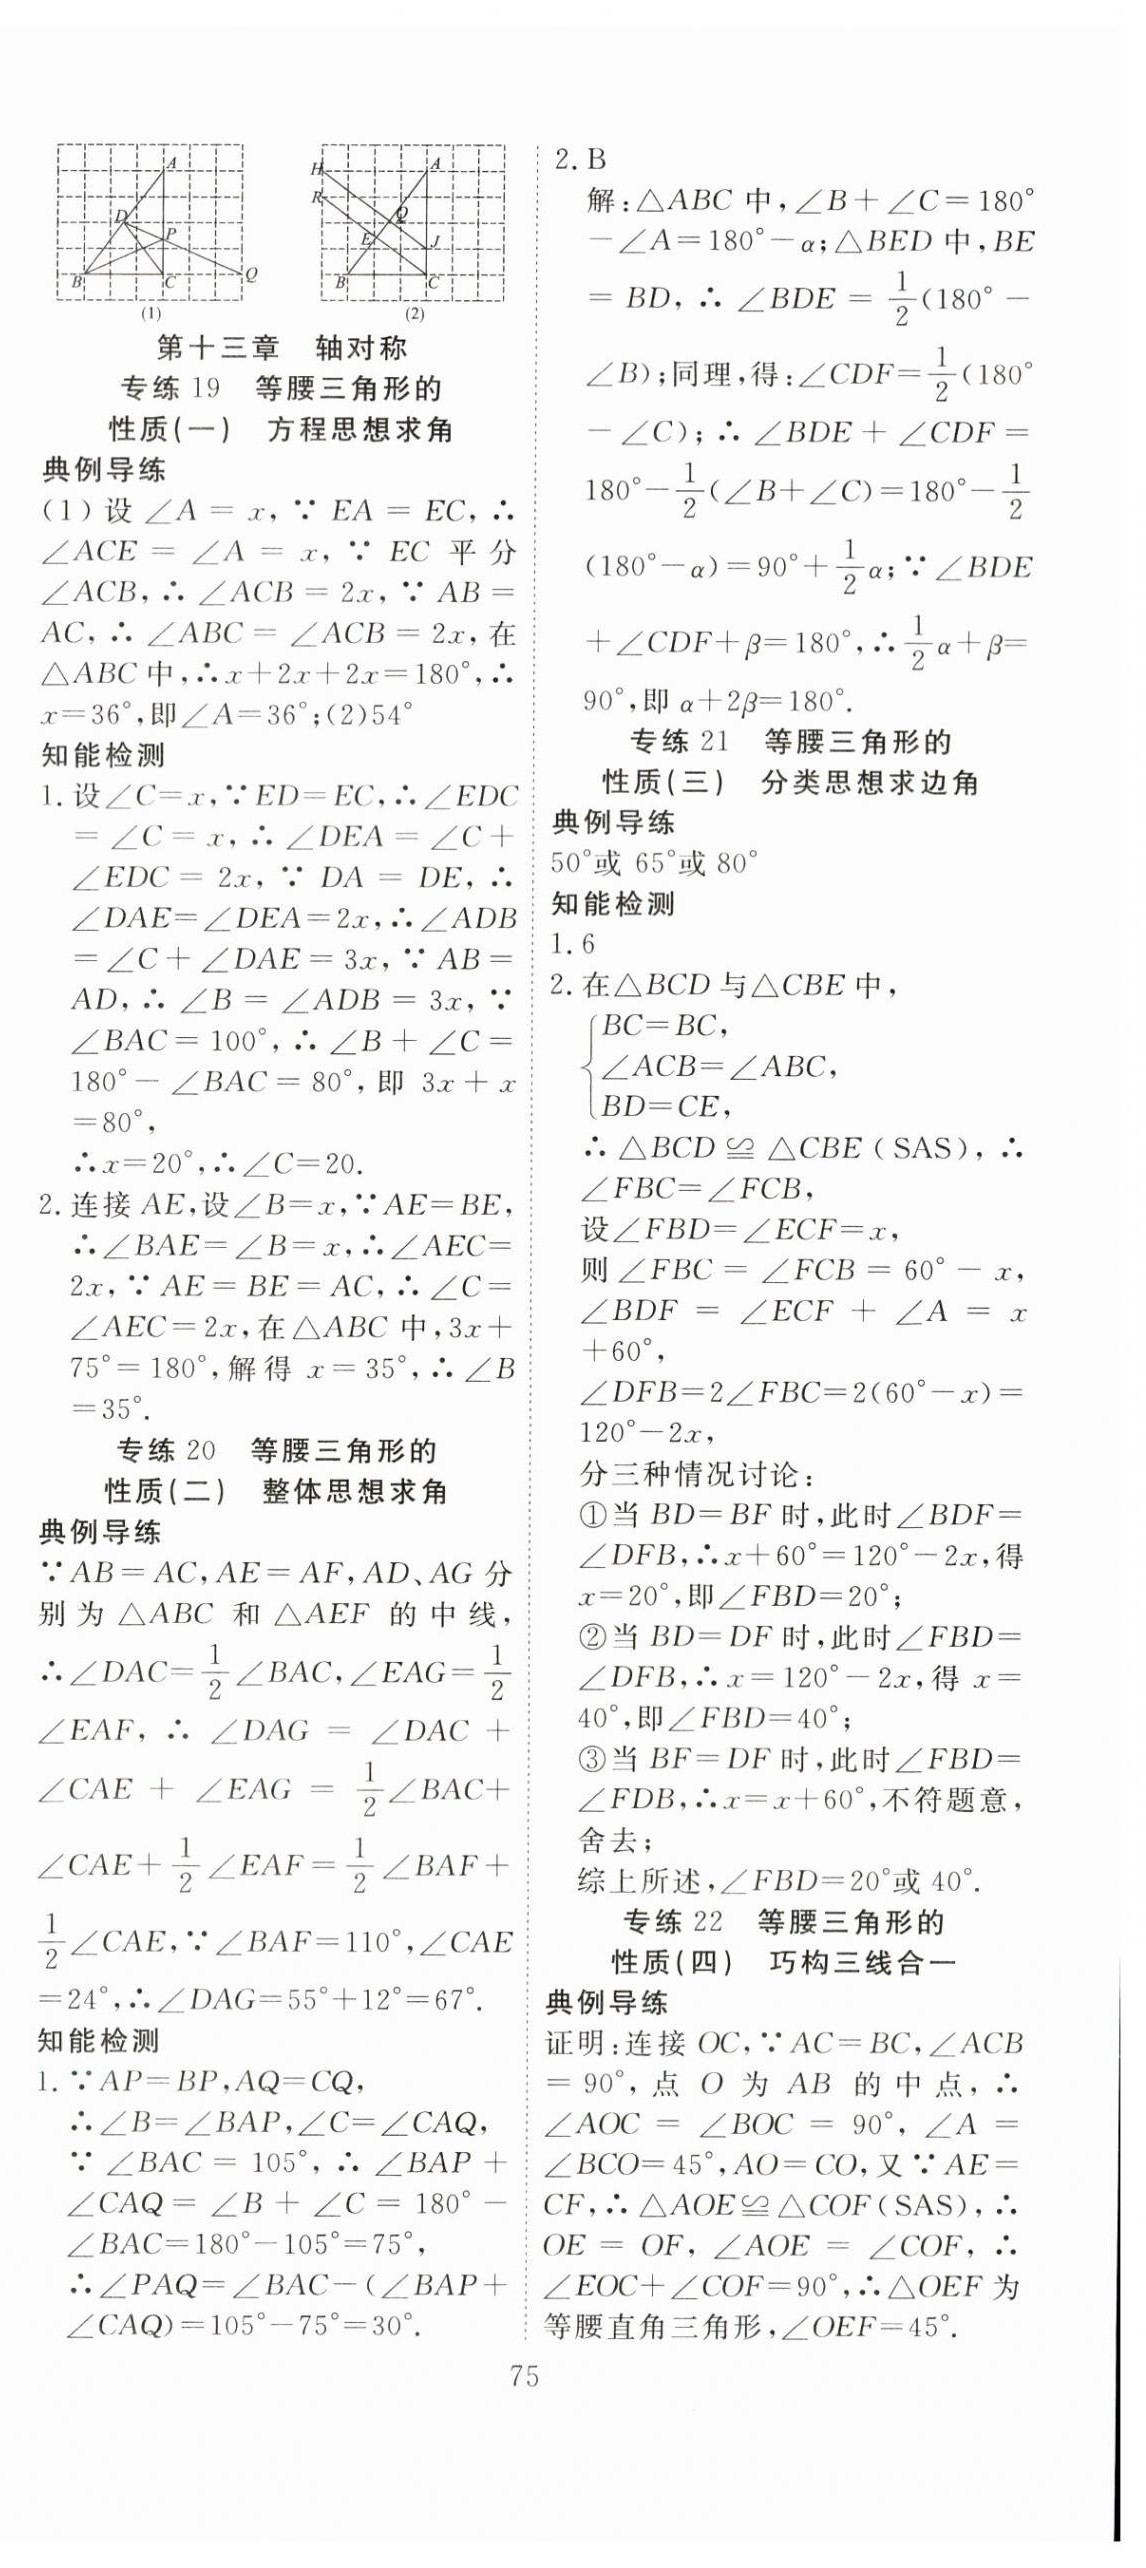 A
D
P
B
C
Q
(1)
H
A
R
Q
E
J
B
C
(2)
第十三章　轴对称
专练 19　等腰三角形的
性质(一)　方程思想求角
典例导练
(1)设∠A=x,∵EA=EC,∴
∠ACE=∠A=x,∵EC 平分
∠ACB,∴∠ACB=2x,∵AB=
AC,∴∠ABC=∠ACB=2x,在
△ABC 中,∴x+2x+2x=180°,∴
x=36°,即∠A=36°;(2)54°
知能检测
1. 设∠C=x,∵ED=EC,∴∠EDC
=∠C=x,∴∠DEA=∠C+
∠EDC=2x,∵DA=DE,∴
∠DAE=∠DEA=2x,∴∠ADB
=∠C+∠DAE=3x,∵AB=
AD,∴∠B=∠ADB=3x,∵
∠BAC=100°,∴∠B+∠C=
180°-∠BAC=80°,即 3x+x
=80°,
∴x=20°,∴∠C=20.
2. 连接 AE,设∠B=x,∵AE=BE,
∴∠BAE=∠B=x,∴∠AEC=
2x,∵AE=BE=AC,∴∠C=
∠AEC=2x,在△ABC 中,3x+
75°=180°,解得 x=35°,∴∠B
=35°.
专练 20　等腰三角形的
性质(二)　整体思想求角
典例导练
∵AB=AC,AE=AF,AD、AG 分
别为△ABC 和△AEF 的中线,
∴∠DAC=1/2∠BAC,∠EAG=1/2
∠EAF,∴∠DAG=∠DAC+
∠CAE+∠EAG=1/2∠BAC+
∠CAE+1/2∠EAF=1/2∠BAF+
1/2∠CAE,∵∠BAF=110°,∠CAE
=24°,∴∠DAG=55°+12°=67°.
知能检测
1. ∵AP=BP,AQ=CQ,
∴∠B=∠BAP,∠C=∠CAQ,
∵∠BAC=105°,∴∠BAP+
∠CAQ=∠B+∠C=180°-
∠BAC=180°-105°=75°,
∴∠PAQ=∠BAC-(∠BAP+
∠CAQ)=105°-75°=30°.
2. B
解:△ABC 中,∠B+∠C=180°
-∠A=180°-α;△BED 中,BE
=BD,∴∠BDE=1/2(180°-
∠B);同理,得:∠CDF=1/2(180°
-∠C);∴∠BDE+∠CDF=
180°-1/2(∠B+∠C)=180°-1/2
(180°-α)=90°+1/2α;∵∠BDE
+∠CDF+β=180°,∴1/2α+β=
90°,即 α+2β=180°.
专练 21　等腰三角形的
性质(三)　分类思想求边角
典例导练
50°或 65°或 80°
知能检测
1. 6
2. 在△BCD 与△CBE 中,
BC=BC,
∠ACB=∠ABC,
BD=CE,
∴△BCD≌△CBE(SAS),∴
∠FBC=∠FCB,
设∠FBD=∠ECF=x,
则∠FBC=∠FCB=60°-x,
∠BDF=∠ECF+∠A=x
+60°,
∠DFB=2∠FBC=2(60°-x)=
120°-2x,
分三种情况讨论:
①当 BD=BF 时,此时∠BDF=
∠DFB,∴x+60°=120°-2x,得
x=20°,即∠FBD=20°;
②当 BD=DF 时,此时∠FBD=
∠DFB,∴x=120°-2x,得 x=
40°,即∠FBD=40°;
③当 BF=DF 时,此时∠FBD=
∠FDB,∴x=x+60°,不符题意,
舍去;
综上所述,∠FBD=20°或 40°.
专练 22　等腰三角形的
性质(四)　巧构三线合一
典例导练
证明:连接 OC,∵AC=BC,∠ACB
=90°,点 O 为 AB 的中点,∴
∠AOC=∠BOC=90°,∠A=
∠BCO=45°,AO=CO,又∵AE=
CF,∴△AOE≌△COF(SAS),∴
OE=OF,∠AOE=∠COF,∴
∠EOC+∠COF=90°,∴△OEF 为
等腰直角三角形,∠OEF=45°.
75